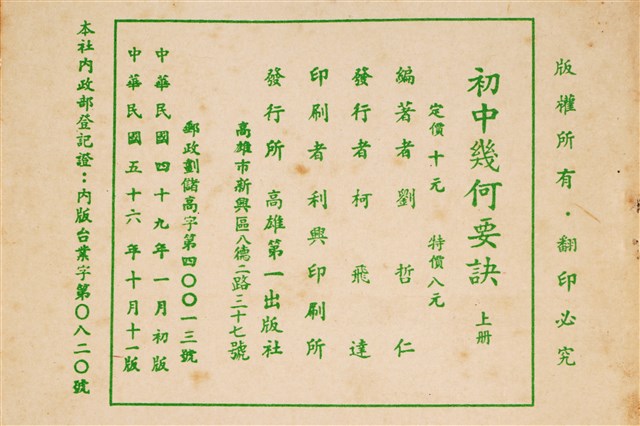 版權所有・翻印必究
初中幾何要訣 上册
定價十元 特價八元
編著者劉哲仁
發行者柯飛達
印刷者利興印刷所
發行所 高雄第一出版社
高雄市新興區八德二路三十七號
郵政劃儲高字第四〇〇一三號
中華民國四十九年一月初版
中華民國五十六年十月十一版
本社內政部登記證：內版台業字第〇八二〇號